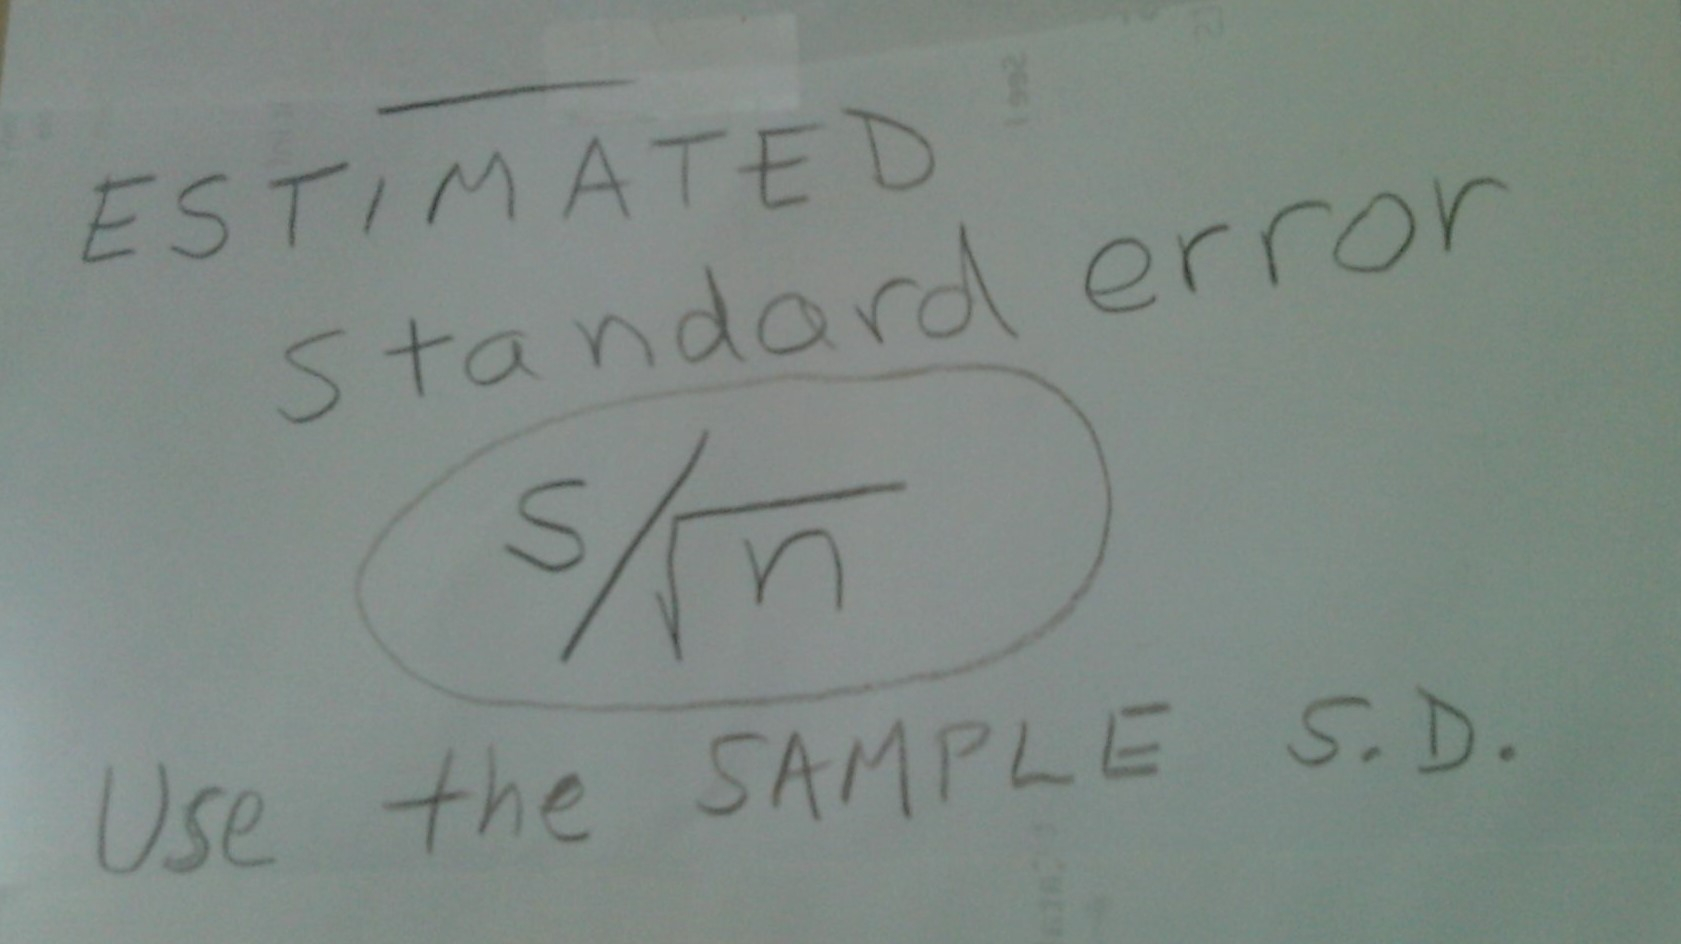 ESTIMATED
standard error
S/√n
Use the SAMPLE S.D.